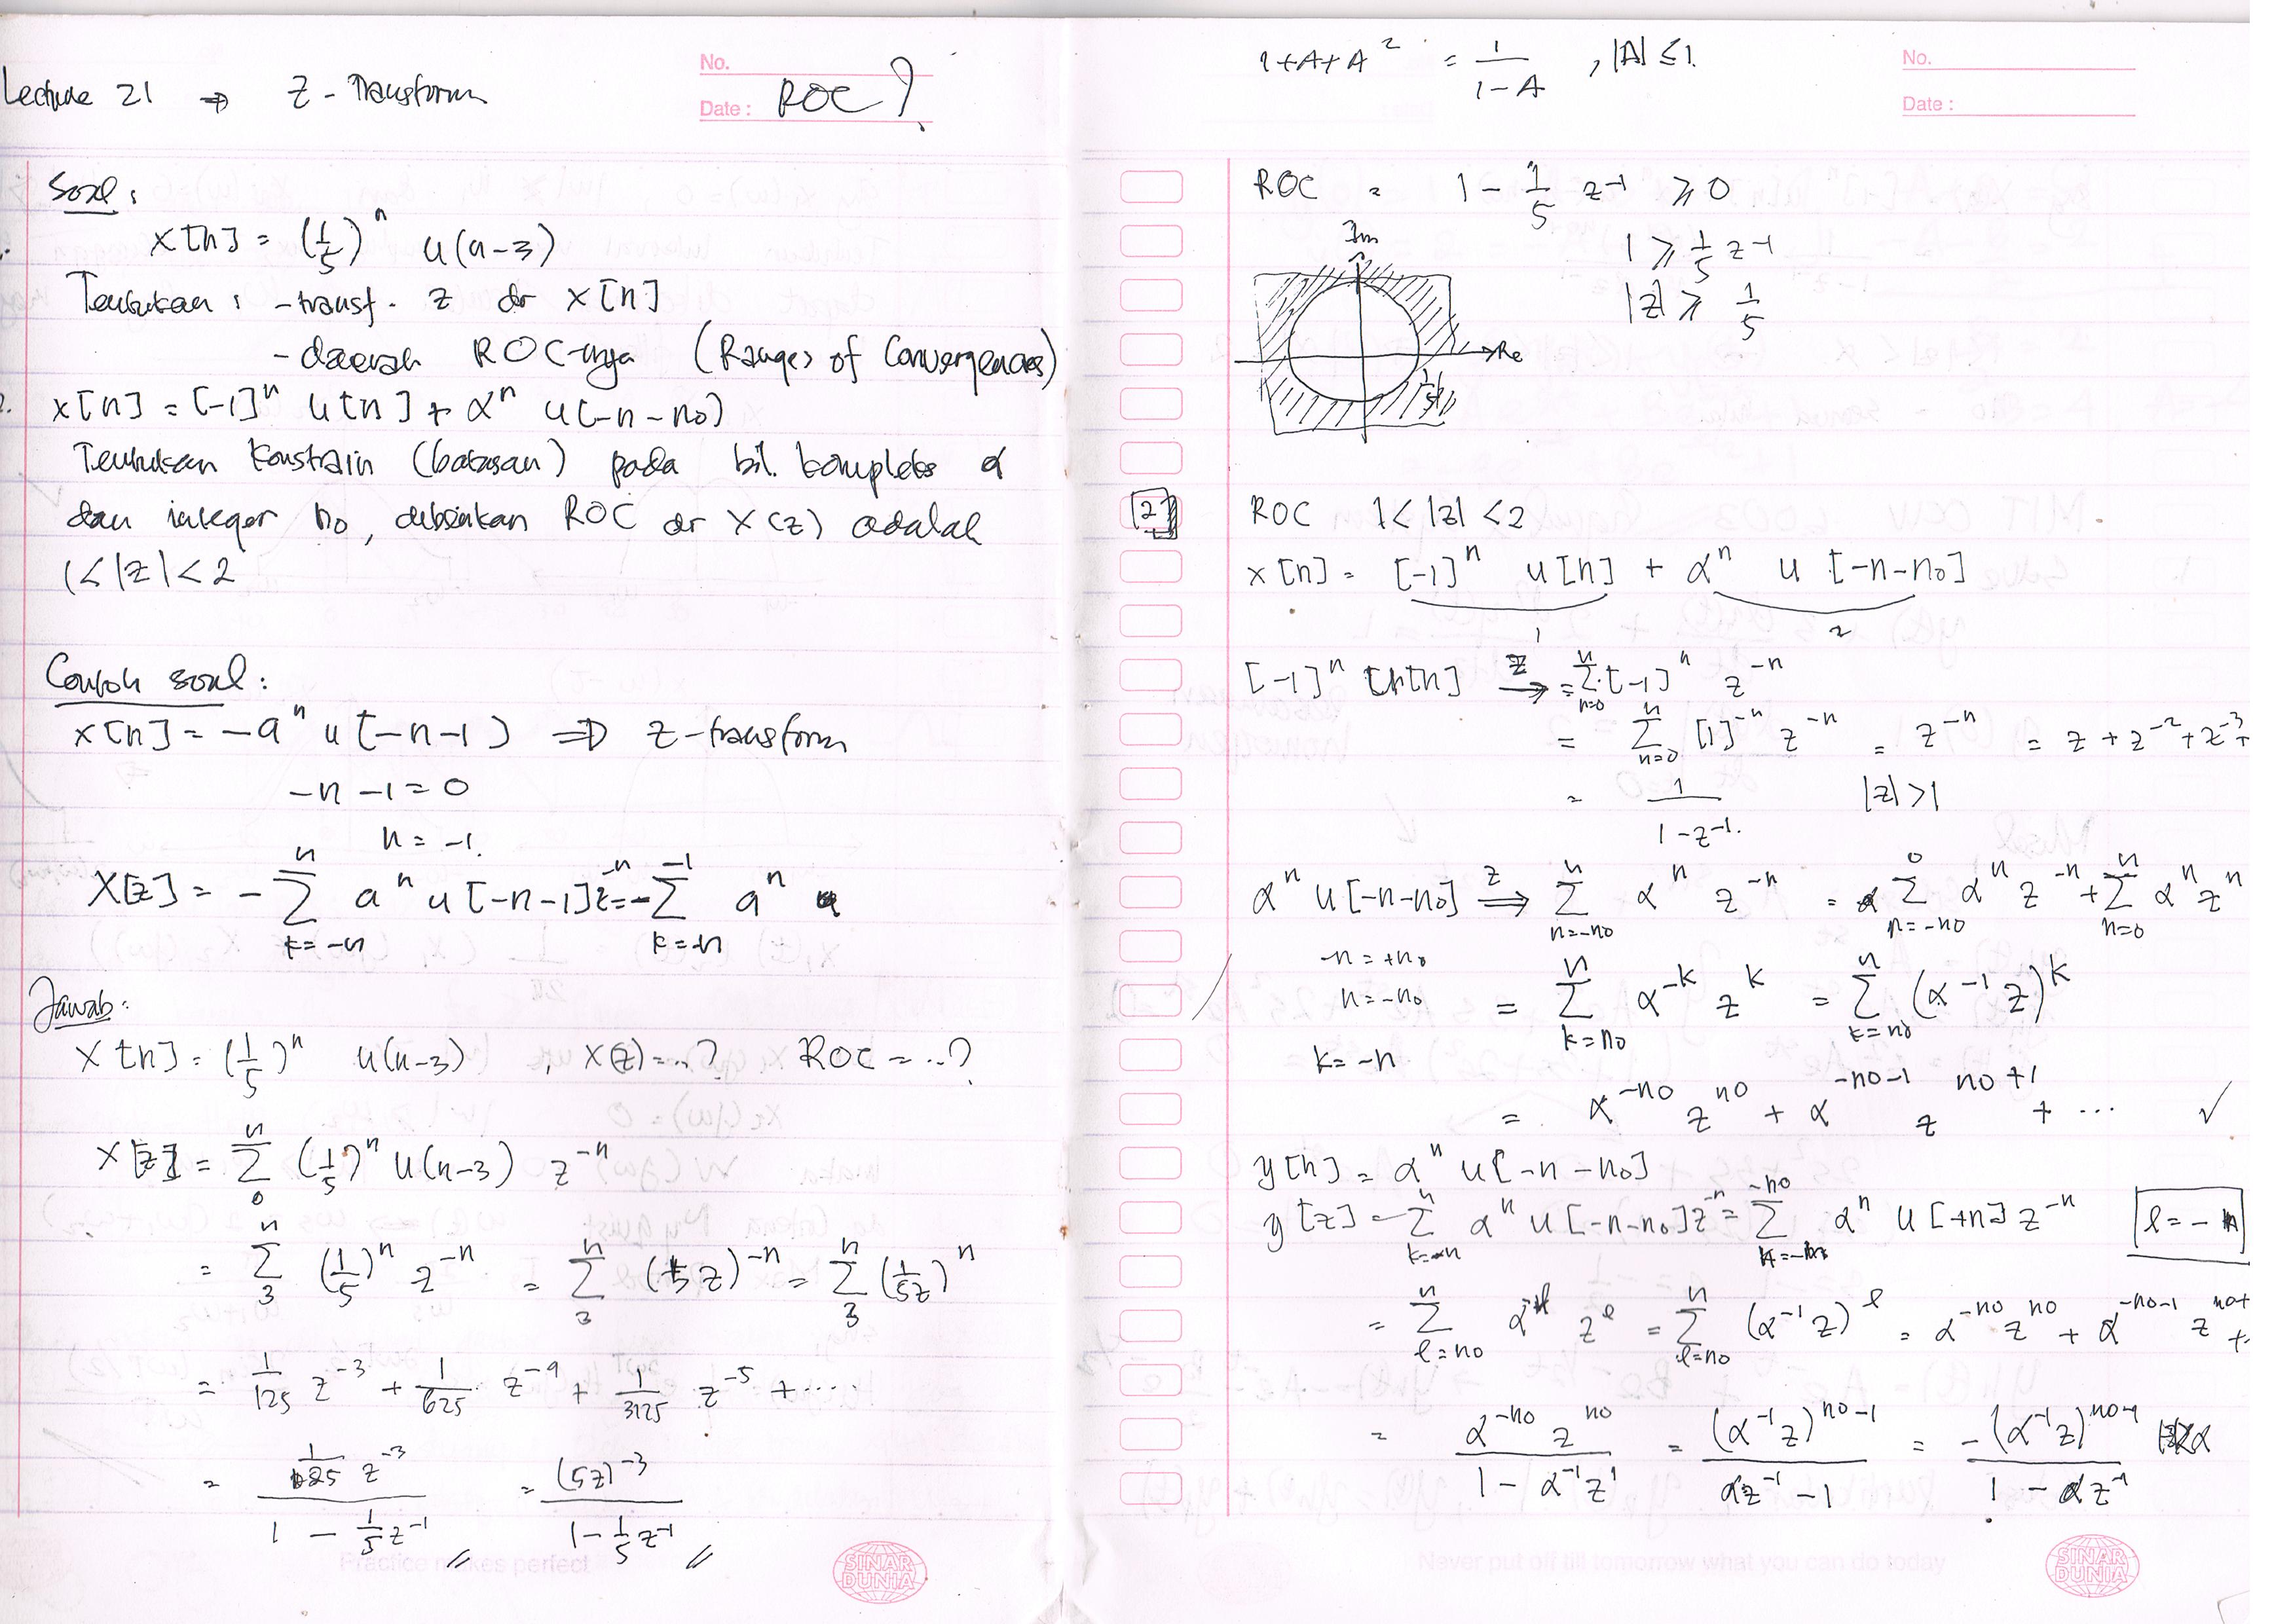 Lecture 21 ⇒ Z - Transform
No.
Date : ROC ?
Soal :
x[n] = (1/5)^n u(n-3)
Tentukan : - transf. z dr x[n]
- daerah ROC-nya (Ranges of Convergences)
2. x[n] = [-1]^n u[n] + α^n u[-n-n0)
Tentukan konstrain (batasan) pada bil. kompleks α
dan integer n0, diberikan ROC dr X(z) adalah
1<|z|<2
Contoh soal :
x[n] = -a^n u[-n-1) ⇒ z-transform
-n -1 = 0
n = -1.
X[z] = - Σ_{k=-n}^{n} a^n u[-n-1] z^-n = - Σ_{k=-n}^{-1} a^n
Jawab :
x[n] = (1/5)^n u(n-3) , X(z) = ..? ROC = ..?
X[z] = Σ_0^n (1/5)^n u(n-3) z^-n
= Σ_3^n (1/5)^n z^-n = Σ_3^n (5z)^-n = Σ_3^n (1/5z)^n
= 1/125 z^-3 + 1/625 z^-4 + 1/3125 z^-5 + ....
= (1/125 z^-3)/(1 - 1/5 z^-1) = (5z)^-3/(1 - 1/5 z^-1) //
Practice makes perfect
SINAR DUNIA
1+A+A^2 = 1/(1-A) , |A| ≤ 1.
No.
Date :
ROC = 1 - 1/5 z^-1 ⩾ 0
1 ⩾ 1/5 z^-1
|z| ⩾ 1/5
Im
Re
1/5
[2] ROC 1< |z| <2
x[n] = [-1]^n u[n] + α^n u[-n-n0]
1 2
[-1]^n u[n] →^z = Σ_{n=0}^n [-1]^n z^-n
= Σ_{n=0}^n [1]^-n z^-n = z^-n = z + z^-2 + z^-3 +
= 1/(1-z^-1) |z| >1
α^n u[-n-n0] ⇒^z Σ_{n=-n0}^n α^n z^-n = Σ_{n=-n0}^0 α^n z^-n + Σ_{n=0}^n α^n z^n
-n = +n0
n = -n0
= Σ_{k=n0}^n α^-k z^k = Σ_{k=n0}^n (α^-1 z)^k
k = -n
= α^-n0 z^n0 + α^-n0-1 z^n0+1 + ... ✓
y[n] = α^n u[-n-n0]
y[z] = Σ_{k=-n}^n α^n u[-n-n0] z^-n = Σ^{-n0} α^n u[+n] z^-n
l = -n
= Σ_{l=n0}^n α^-l z^l = Σ_{l=n0}^n (α^-1 z)^l = α^-n0 z^n0 + α^-n0-1 z^n0+
= (α^-n0 z^n0)/(1 - α^-1 z^1) = (α^-1 z)^n0-1/(αz^-1 - 1) = -(α^-1 z)^n0-1/(1 - αz^-1)
Never put off till tomorrow what you can do today
SINAR DUNIA